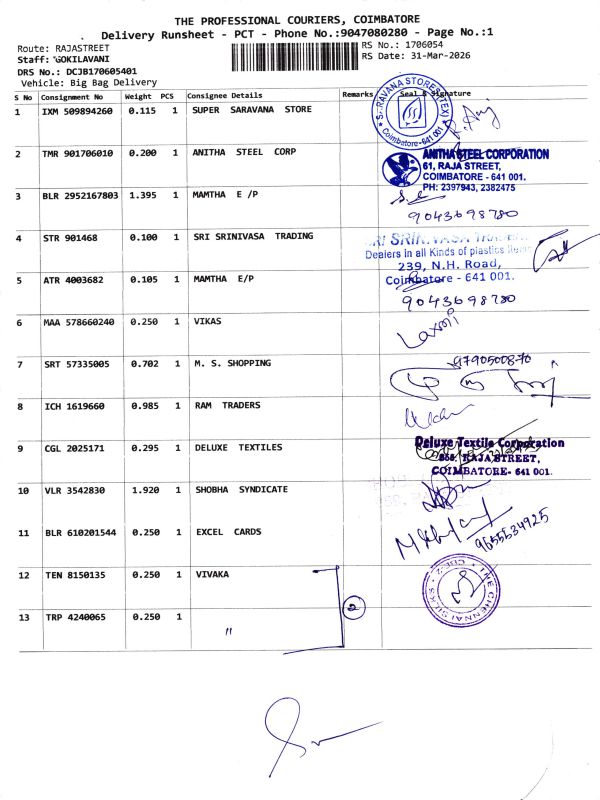 THE PROFESSIONAL COURIERS, COIMBATORE
Delivery Runsheet - PCT - Phone No.:9047080280 - Page No.:1
Route: RAJASTREET
Staff: GOKILAVANI
DRS No.: DCJB170605401
Vehicle: Big Bag Delivery
RS No.: 1706054
RS Date: 31-Mar-2026
S No Consignment No Weight PCS Consignee Details Remarks Seal & Signature
1 IXM 509894260 0.115 1 SUPER SARAVANA STORE
Coimbatore-641 001
2 TMR 901706010 0.200 1 ANITHA STEEL CORP
ANITHA STEEL CORPORATION
61, RAJA STREET,
COIMBATORE - 641 001.
PH: 2397943, 2382475
3 BLR 2952167803 1.395 1 MAMTHA E /P
9043698780
4 STR 901468 0.100 1 SRI SRINIVASA TRADING
SRI SRINIVASA
Dealers in all Kinds of plastics Items
239, N.H. Road,
Coimbatore - 641 001.
5 ATR 4003682 0.105 1 MAMTHA E/P
9043698780
6 MAA 578660240 0.250 1 VIKAS
Laxmi
7 SRT 57335005 0.702 1 M. S. SHOPPING
8 ICH 1619660 0.985 1 RAM TRADERS
9 CGL 2025171 0.295 1 DELUXE TEXTILES
Deluxe Textile Corporation
RAJA STREET,
COIMBATORE- 641 001.
10 VLR 3542830 1.920 1 SHOBHA SYNDICATE
11 BLR 610201544 0.250 1 EXCEL CARDS
9655534925
12 TEN 8150135 0.250 1 VIVAKA
13 TRP 4240065 0.250 1 "
2